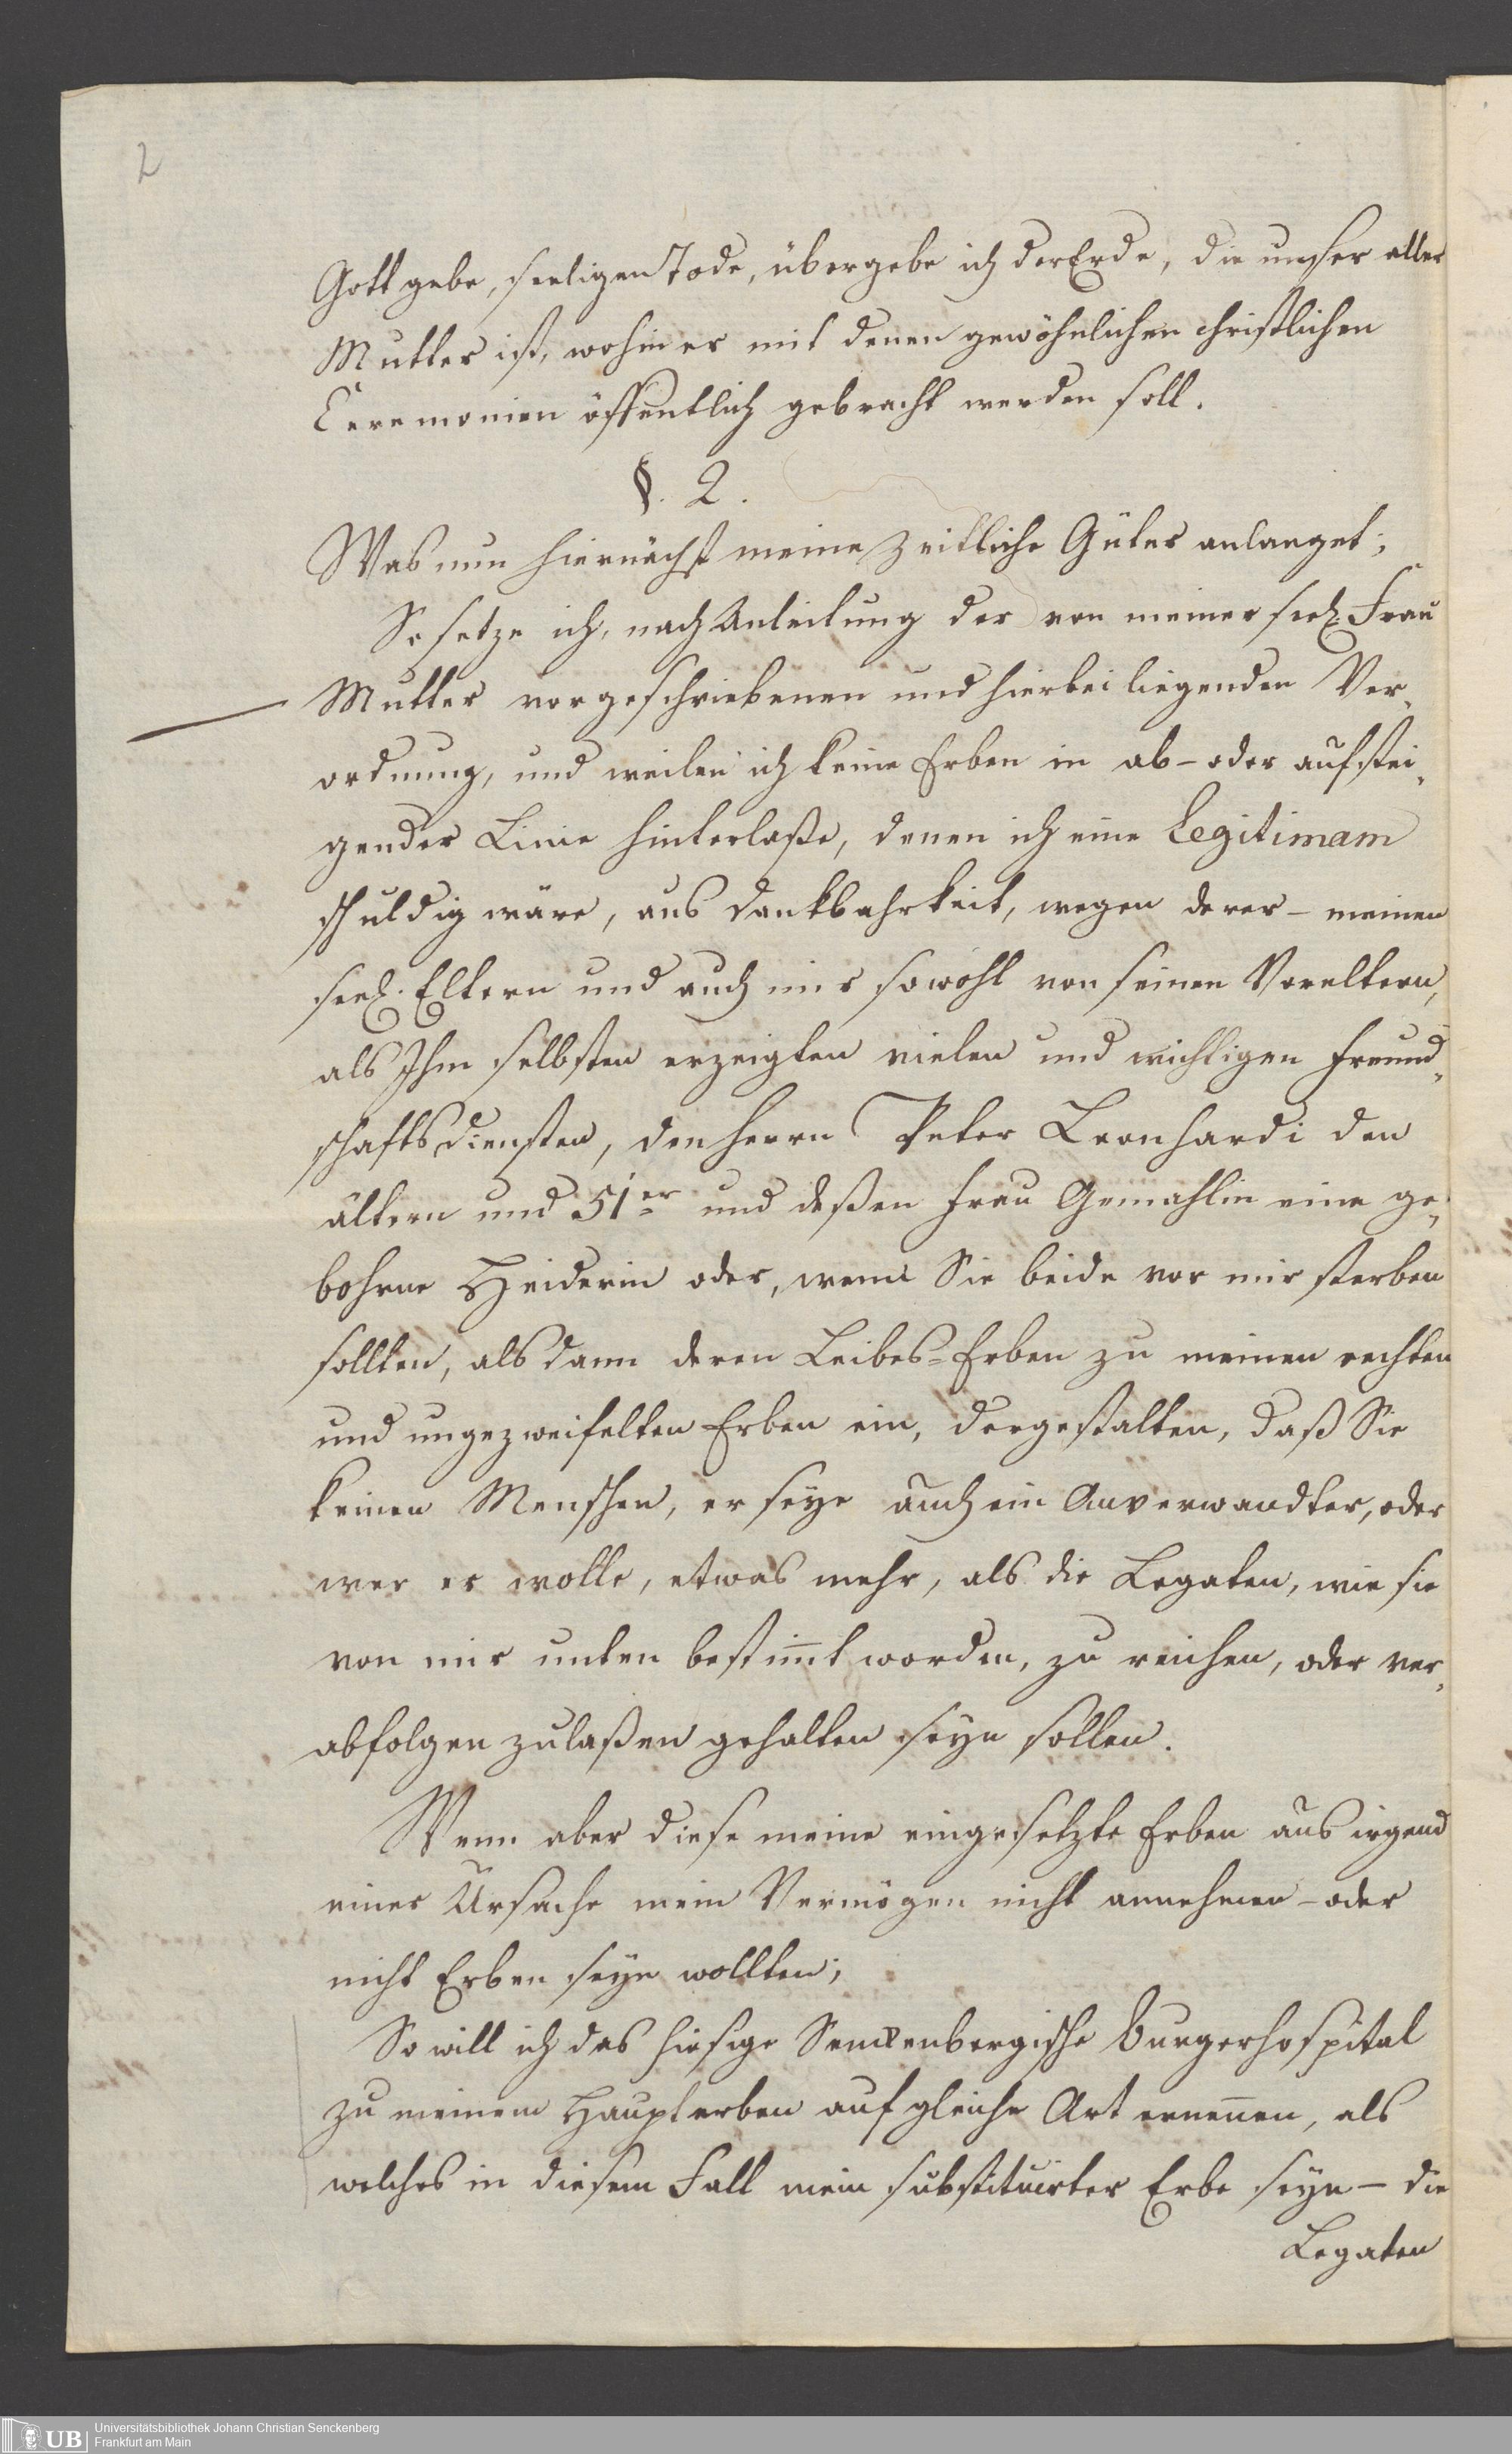 2
Gott gebe, seeligen Tode, übergebe ich der Erde, die unser aller
Mutter ist, wohin er mit denen gewöhnlichen christlichen
Ceremonien öffentlich gebracht werden soll.
§. 2.
Was nun hiernächst meine zeitliche Güter anlanget;
So setze ich, nach Anleitung der von meiner seel. Frau
Mutter vorgeschriebenen und hierbei liegenden Ver„
ordnung, und weilen ich keine Erben in ab- oder aufstei„
gender Linie hinterlaße, denen ich eine Legitimam
schuldig wäre, aus Dankbahrkeit, wegen derer - meinen
seel. Eltern und auch mir sowohl von seinen Voreltern,
als Ihm selbsten erzeigten vielen und wichtigen Freund„
schaftsdiensten, den Herrn Peter Leonhardi den
ältern und 51er und deßen Frau Gemahlin eine ge„
bohrne Heiderin oder, wenn Sie beide vor mir sterben
sollten, alsdann deren Leibes-Erben zu meinen rechten
und ungezweifelten Erben ein, dergestalten, daß Sie
keinen Menschen, er seye auch ein Anverwandter, oder
wer er wolle, etwas mehr, als die Legaten, wie sie
von mir unten bestim̄t worden, zu reichen, oder ver„
abfolgen zulaßen gehalten seyn sollen.
Wenn aber diese meine eingesetzte Erben aus irgend
einer Ursache mein Vermögen nicht annehmen - oder
nicht Erben seyn wollten;
So will ich das hiesige Senckenbergische Burgerhospital
zu meinem Haupterben auf gleiche Art ernen̄en, als
welches in diesem Fall mein substituirter Erbe seyn - die
Legaten
UB
Universitätsbibliothek Johann Christian Senckenberg
Frankfurt am Main